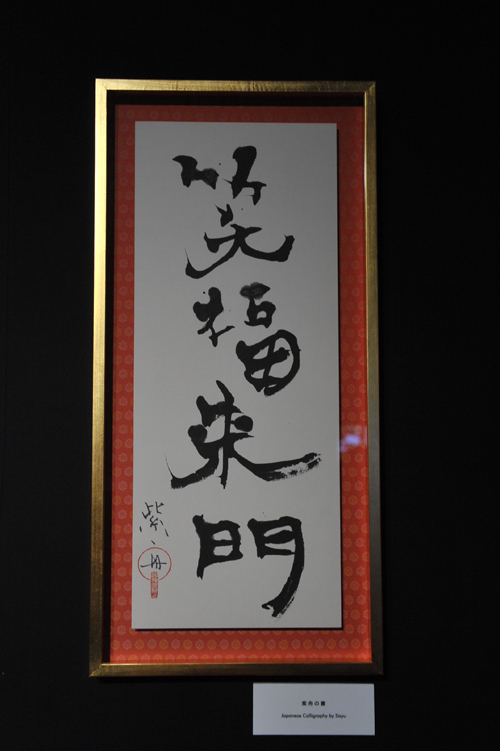 笑福来門
紫舟
紫舟の書
Japanese Calligraphy by Sisyu